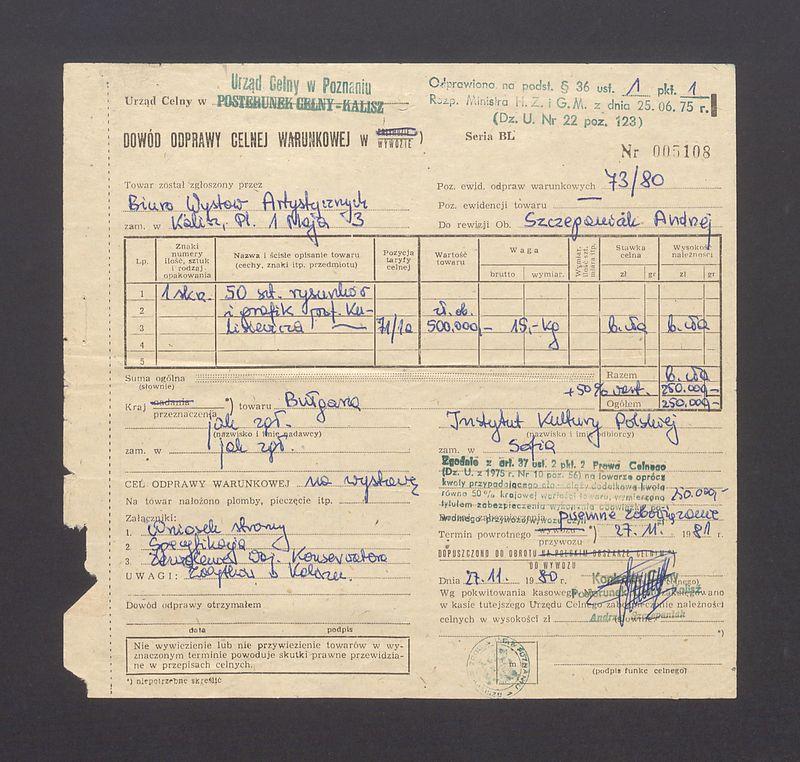 Urząd Celny w Poznaniu
Urząd Celny w POSTERUNEK CELNY-KALISZ
Odprawiono na podst. § 36 ust. 1 pkt. 1
Rozp. Ministra H. Z. i G. M. z dnia 25. 06. 75 r.
(Dz. U. Nr 22 poz. 123)
DOWÓD ODPRAWY CELNEJ WARUNKOWEJ W WYWOZIE )
Seria BL
Nr 005108
Towar został zgłoszony przez
Biuro Wystaw Artystycznych
zam. w Kalisz, Pl. 1 Maja 3
Poz. ewid. odpraw warunkowych 73/80
Poz. ewidencji towaru
Do rewizji Ob. Szczepaniak Andrzej
Lp.
Znaki numery ilość, sztuk i rodzaj opakowania
Nazwa i ścisłe opisanie towaru (cechy, znaki itp. przedmiotu)
Pozycja taryfy celnej
Wartość towaru
Waga
brutto
wymiar.
Wymiar. ilość szt. miara itp.
Stawka celna
zł gr
Wysokość należności
zł gr
1 1 skrz. 50 szt. rysunków
2 i grafik prof. Ku- zł. ob.
3 lisiewicza 71/1a 500.000,- 15,- kg b. cła b. cła
4
5
Suma ogólna
(słownie)
Razem b. cła
+50% wart. 250.000,-
Ogółem 250.000,-
Kraj nadania *) towaru Bułgaria
przeznaczenia
jak zgł.
(nazwisko i imię nadawcy)
zam. w jak zgł.
Instytut Kultury Polskiej
(nazwisko i imię odbiorcy)
zam. w Sofia
CEL ODPRAWY WARUNKOWEJ na wystawę
Na towar nałożono plomby, pieczęcie itp.
Zgodnie z art. 37 ust. 2 pkt. 2 Prawa Celnego
(Dz. U. z 1975 r. Nr 10 poz. 56) na towarze oprócz
kwoty przypadającego cła – ciąży dodatkową kwotą
równa 50% krajowej wartości towaru, wymierzoną 250.000,-
tytułem zabezpieczenia wykonania obowiązku po-
wrotnego przywozu/wywozu
pisemne zobowiązanie
Załączniki:
1. Wniosek strony
2. Specyfikacja
3. Woj. Konserwatora
UWAGI: Zabytków w Kaliszu.
Termin powrotnego wywozu *) 27. 11. 1981 r.
przywozu
DOPUSZCZONO DO OBROTU NA POLSKIM OBSZARZE CELNYM
DO WYWOZU
Dnia 27.11. 1980 r.
Kontroler Celny
Wg pokwitowania kasowego
Posterunek Kalisz
w kasie tutejszego Urzędu Celnego zabezpieczenie należności
celnych w wysokości zł
Andrzej Szczepaniak
*)
Dowód odprawy otrzymałem
data podpis
Nie wywiezienie lub nie przywiezienie towarów w wy-
znaczonym terminie powoduje skutki prawne przewidzia-
ne w przepisach celnych.
*) niepotrzebne skreślić
(podpis funkc celnego)